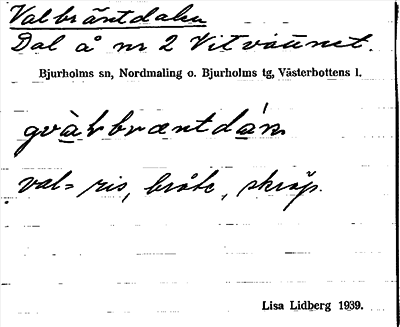 Valbräntdalen
Dal å nr 2 Vitvattnet.
Bjurholms sn, Nordmaling o. Bjurholms tg, Västerbottens l.
val= ris, bråte, skräp.
Lisa Lidberg 1939.